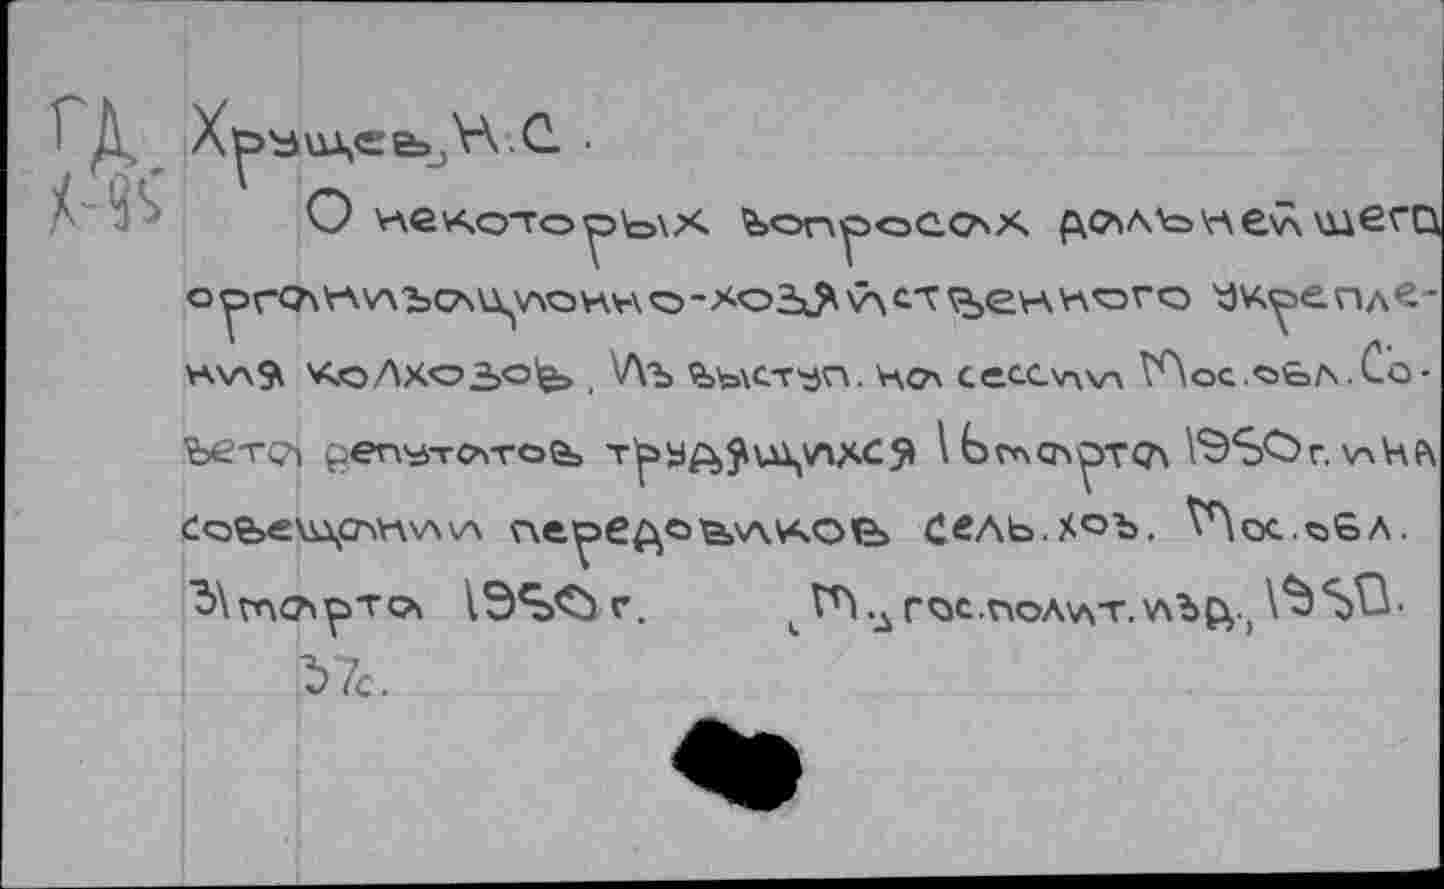 ГД Хрущев, Н.С.
Х-95 О некоторых вопросах дальнейшего
организационно-хозяйственного укрепле-
ния колхозов. Из выступ. на сессии Мос.обл.Со-
вета депутатов трудящихся 16 марта 1950г. и на
совещании передовиков сель.хоз. Мос.обл.
31 марта 1950 г. М., гос.полит.изд., 1950.
37с.